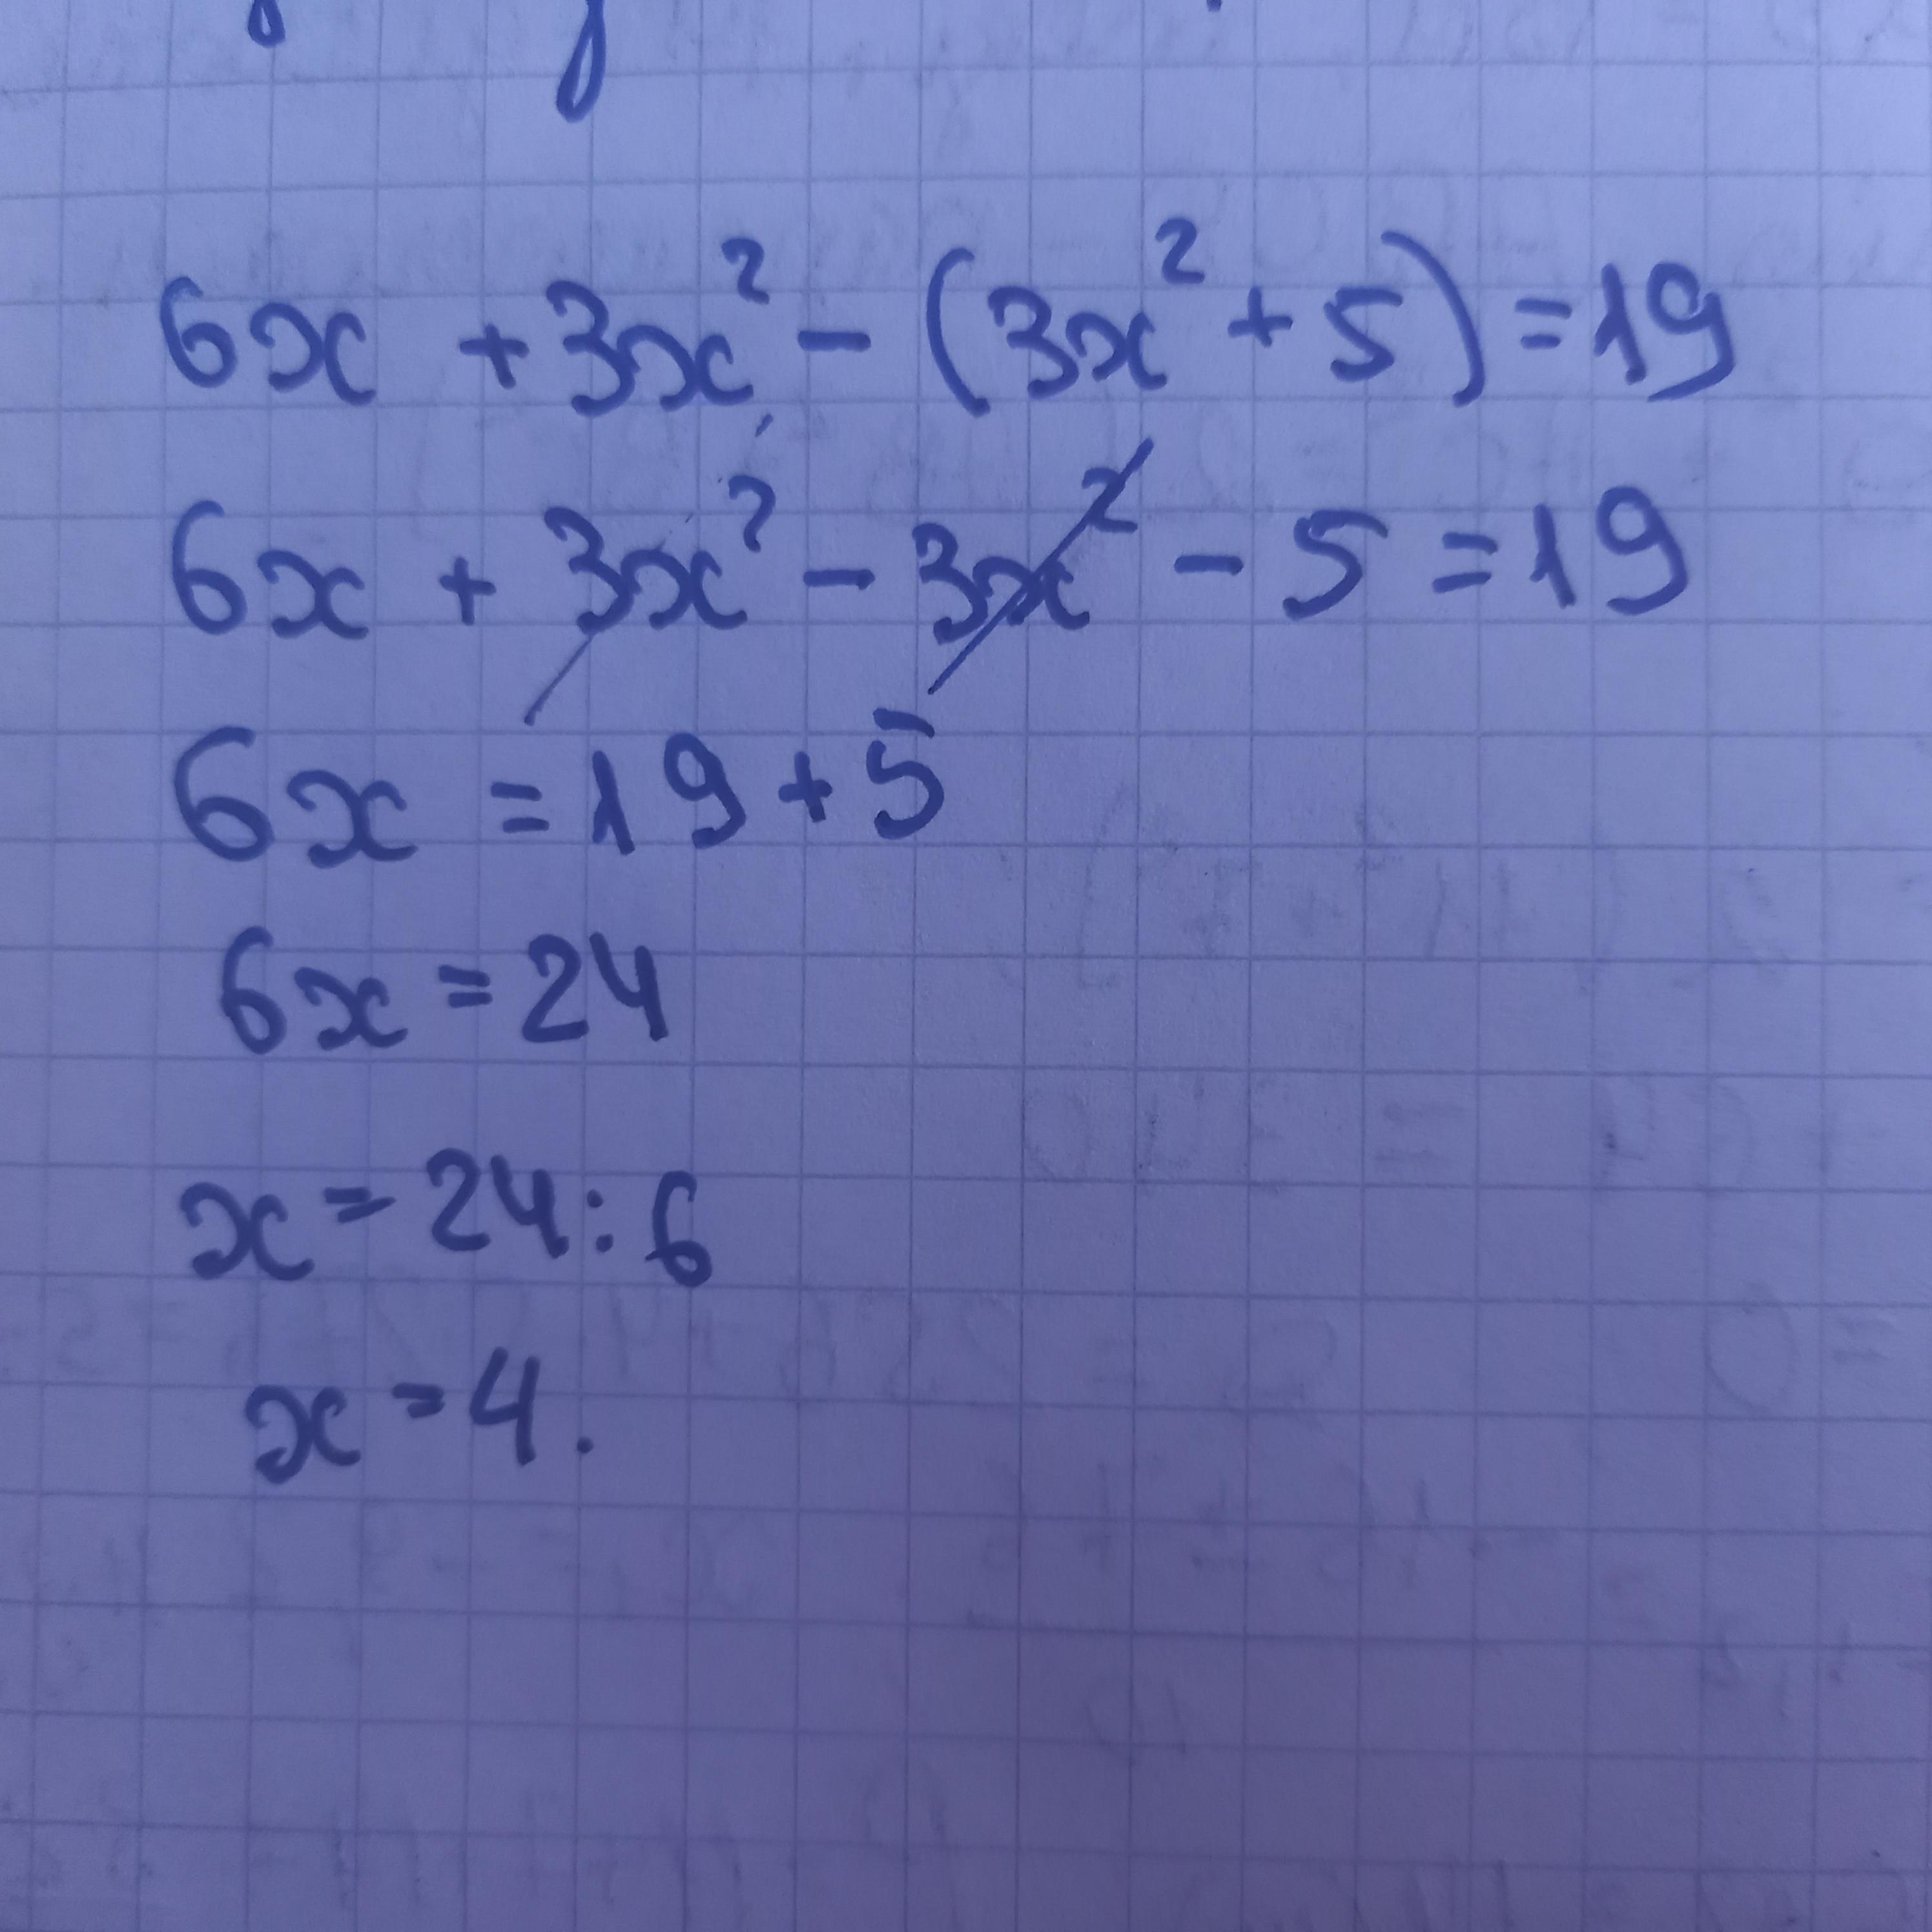 6x + 3x² - (3x² + 5) = 19
6x + 3x² - 3x² - 5 = 19
6x = 19 + 5
6x = 24
x = 24 : 6
x = 4.